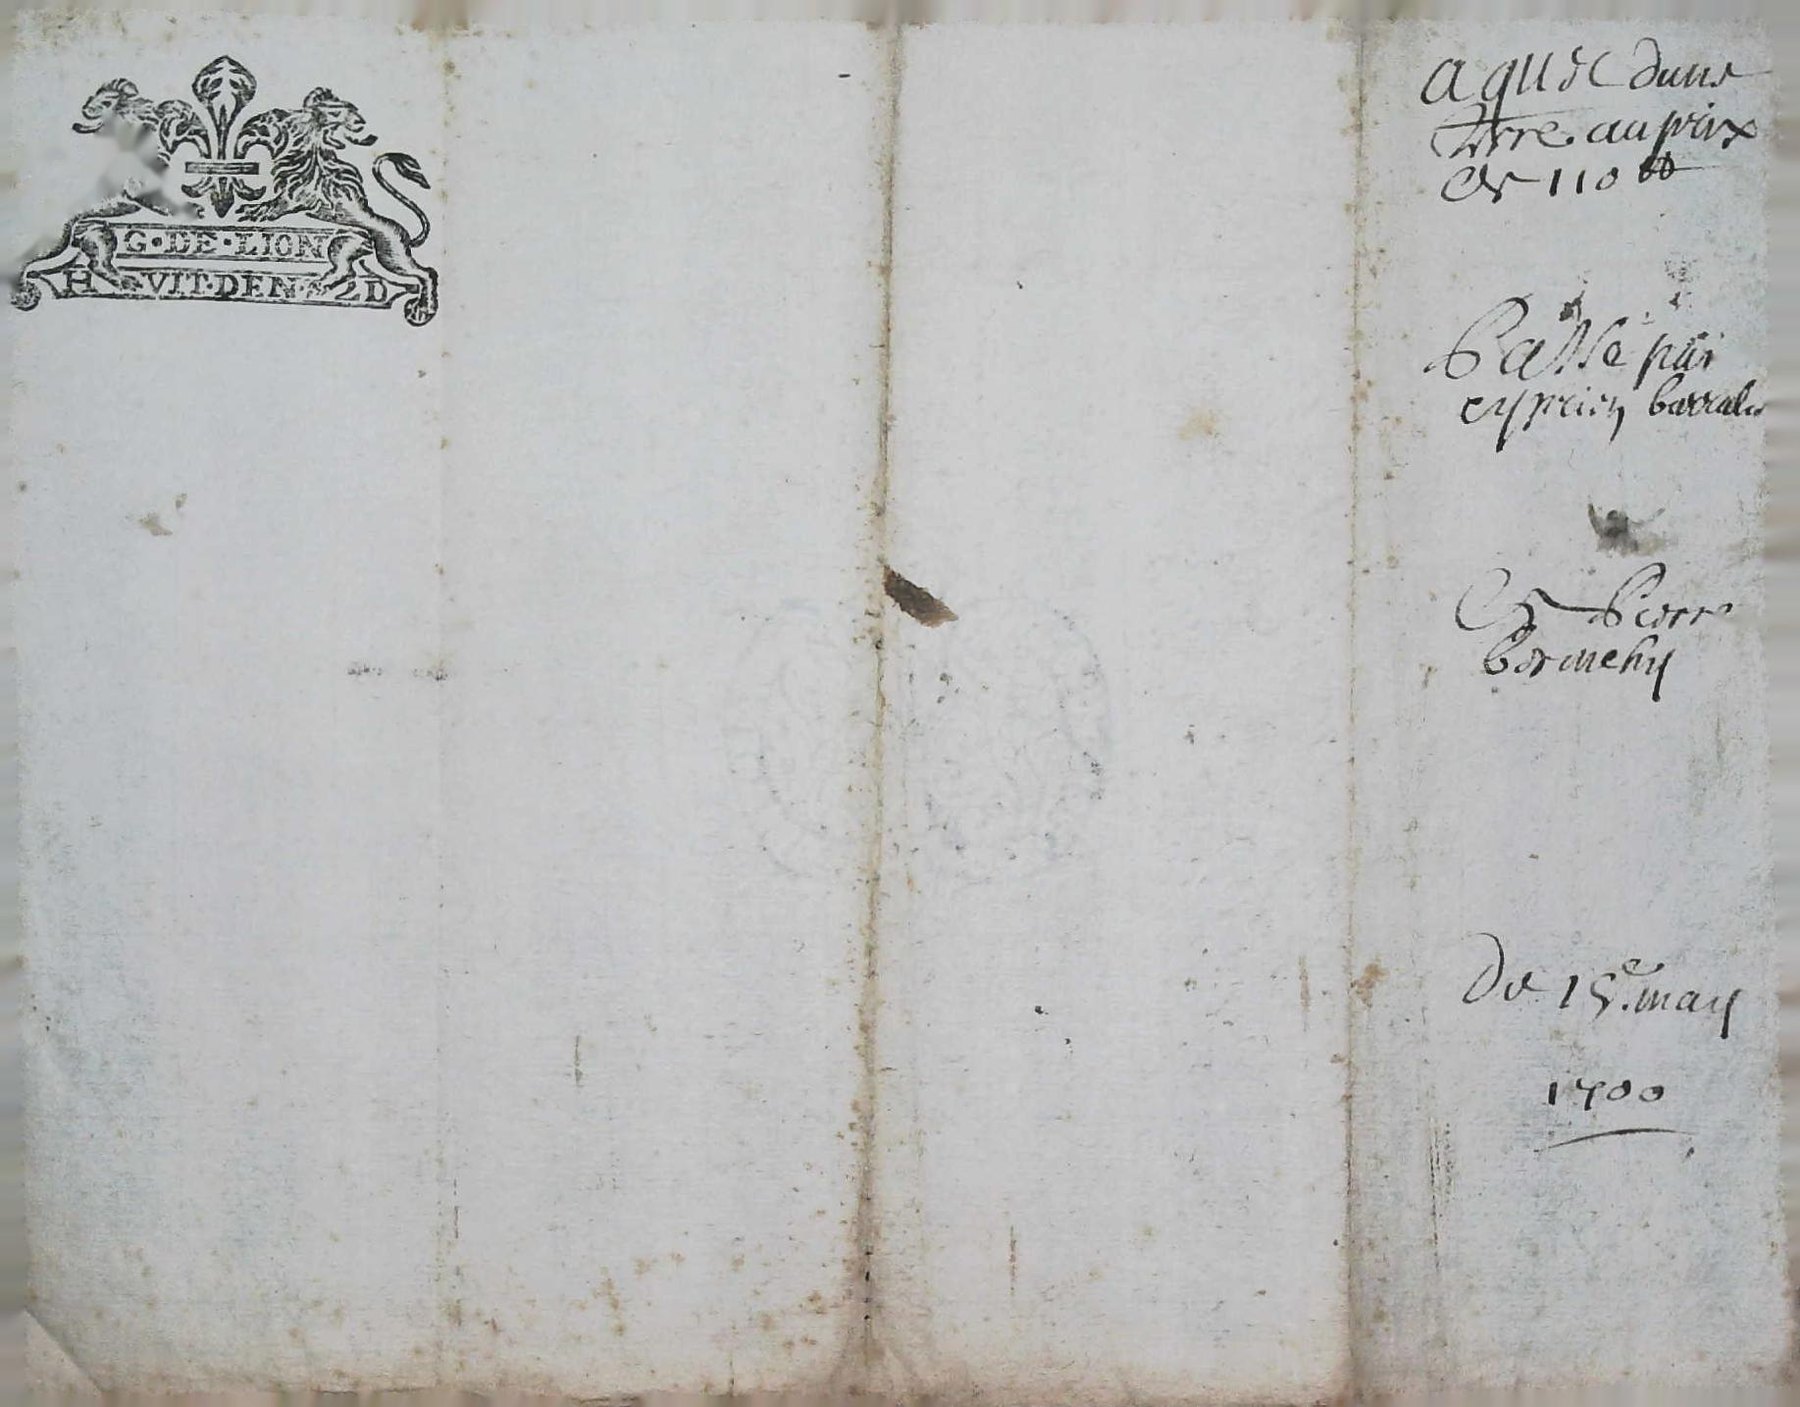 G·DE·LION
HVIT·DEN·& 2D
aquit dune
terre au prix
de 110 ₶
Passe par
cyprien barralis
Et Pierre
bermehy
De 15e. may
1700